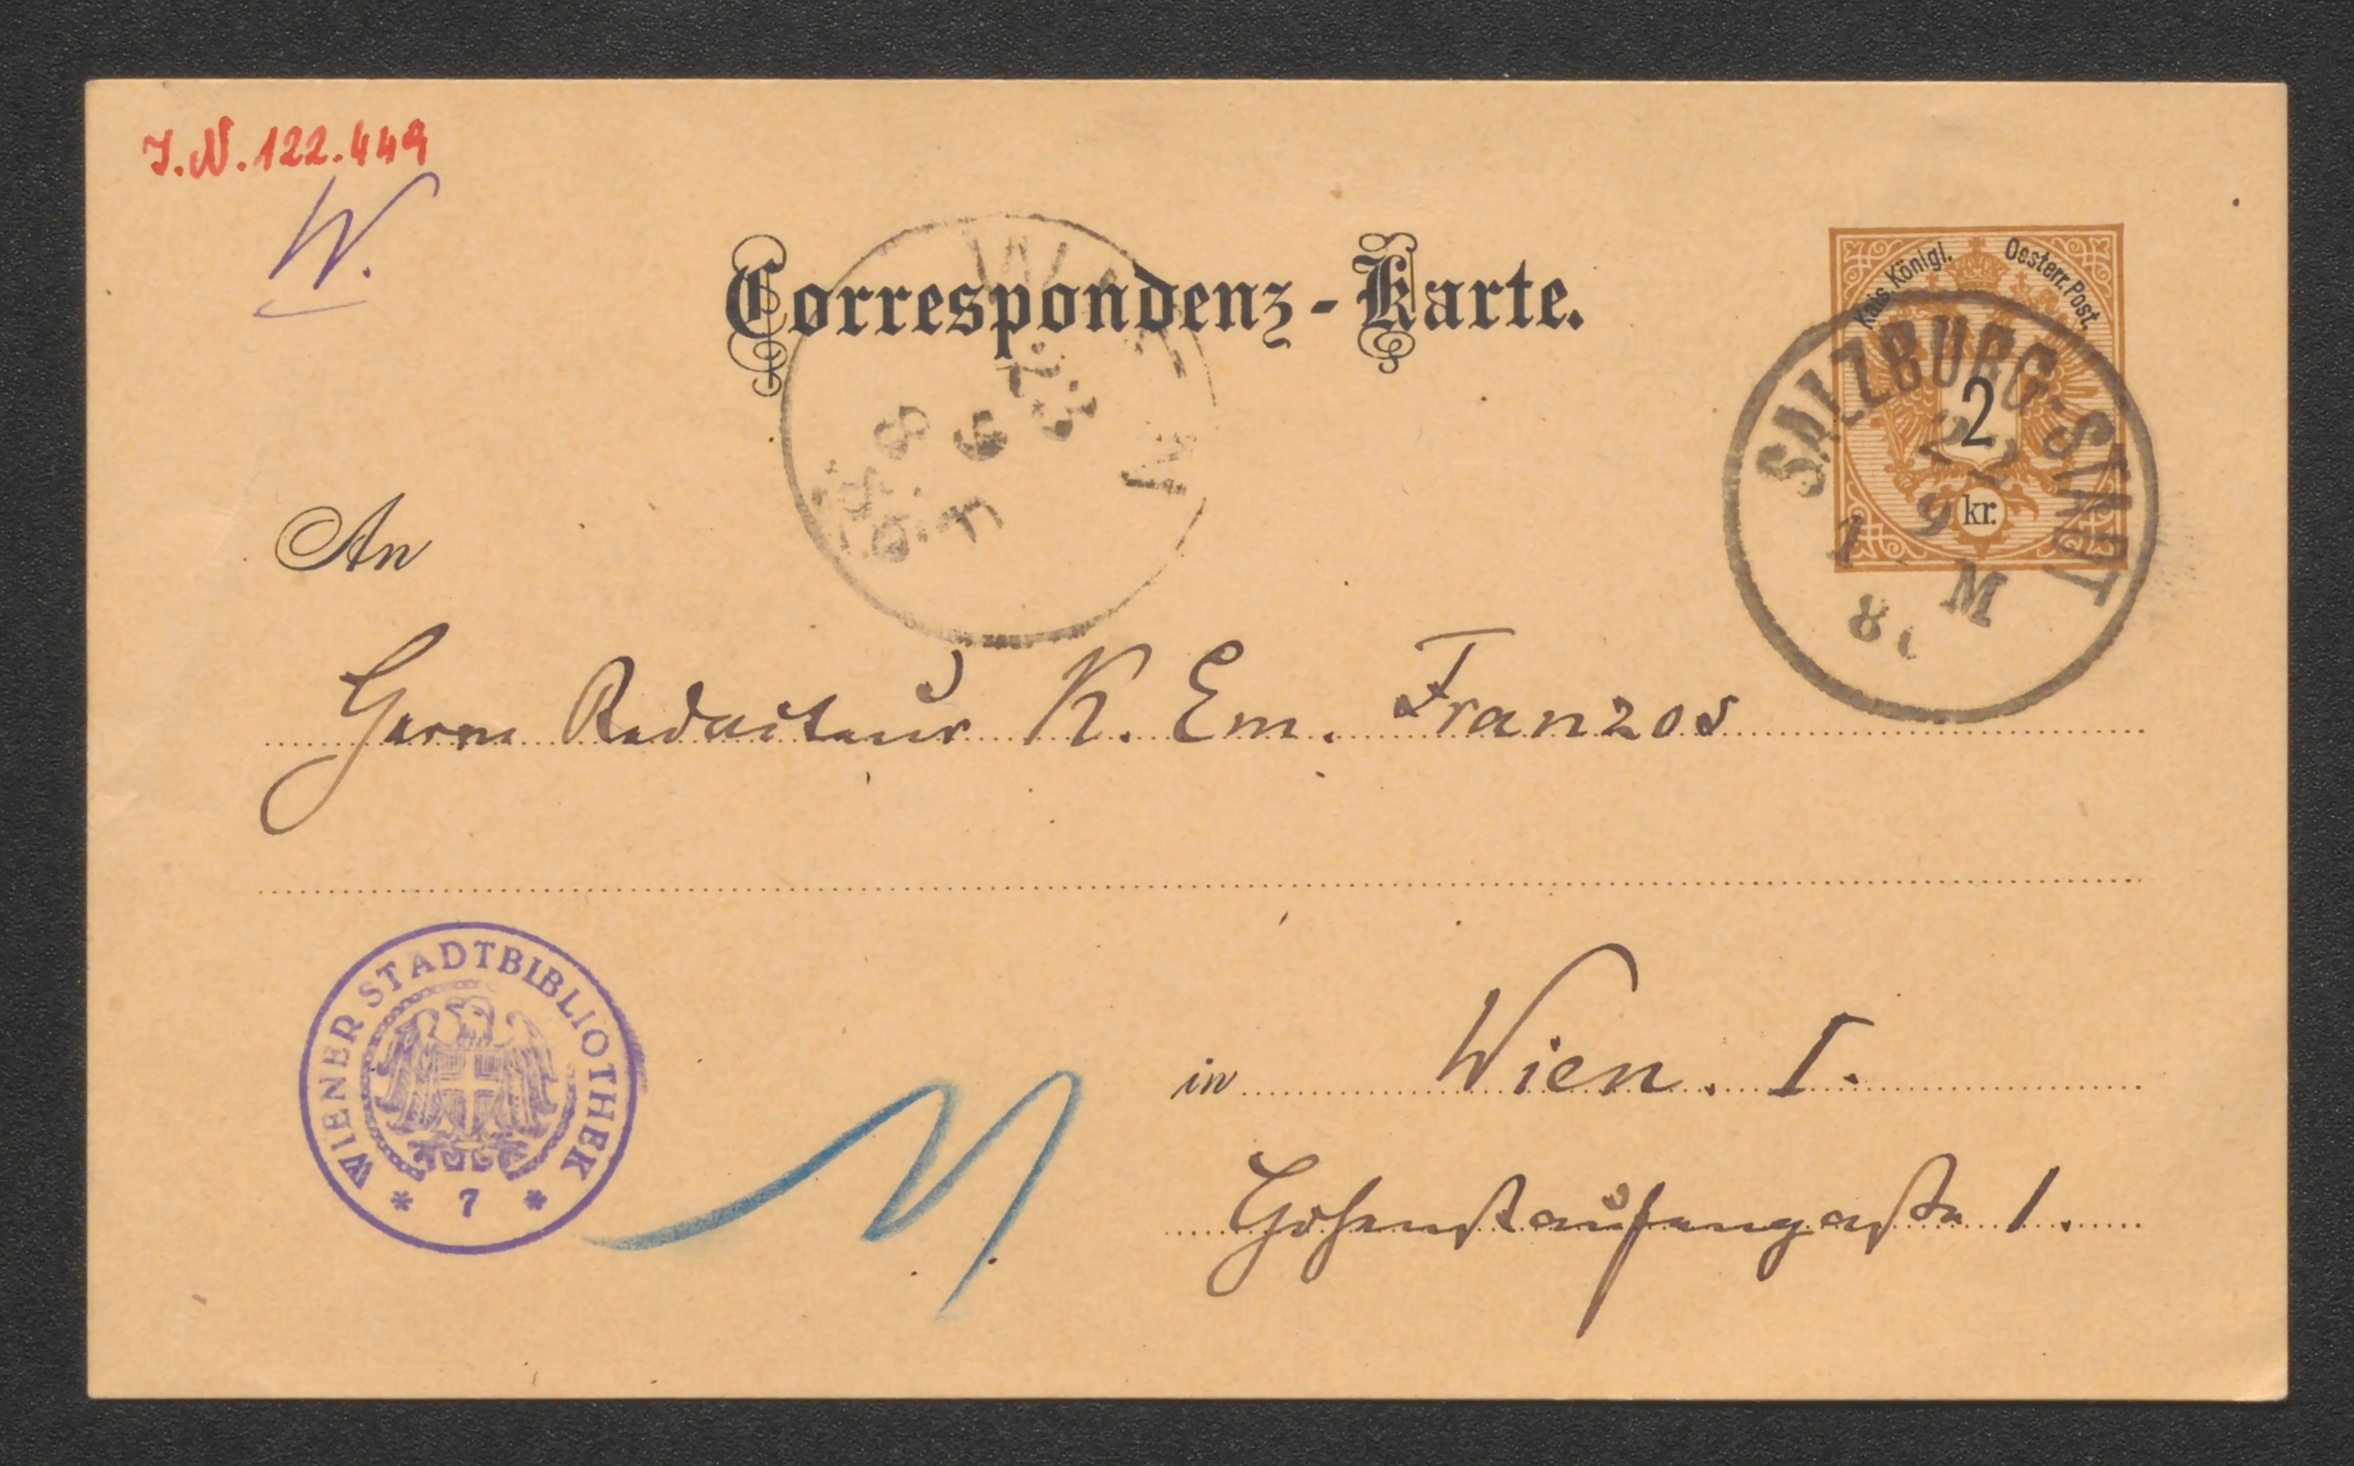 J.N.122.449
W.
Correspondenz-Karte.
Kais. Königl. Oesterr. Post.
2
kr.
SALZBURG-STADT
22
9
M
An
Herrn Redacteur K. Em. Franzos
in Wien. I.
Hohenstaufengasse 1.
WIENER STADTBIBLIOTHEK
* 7 *